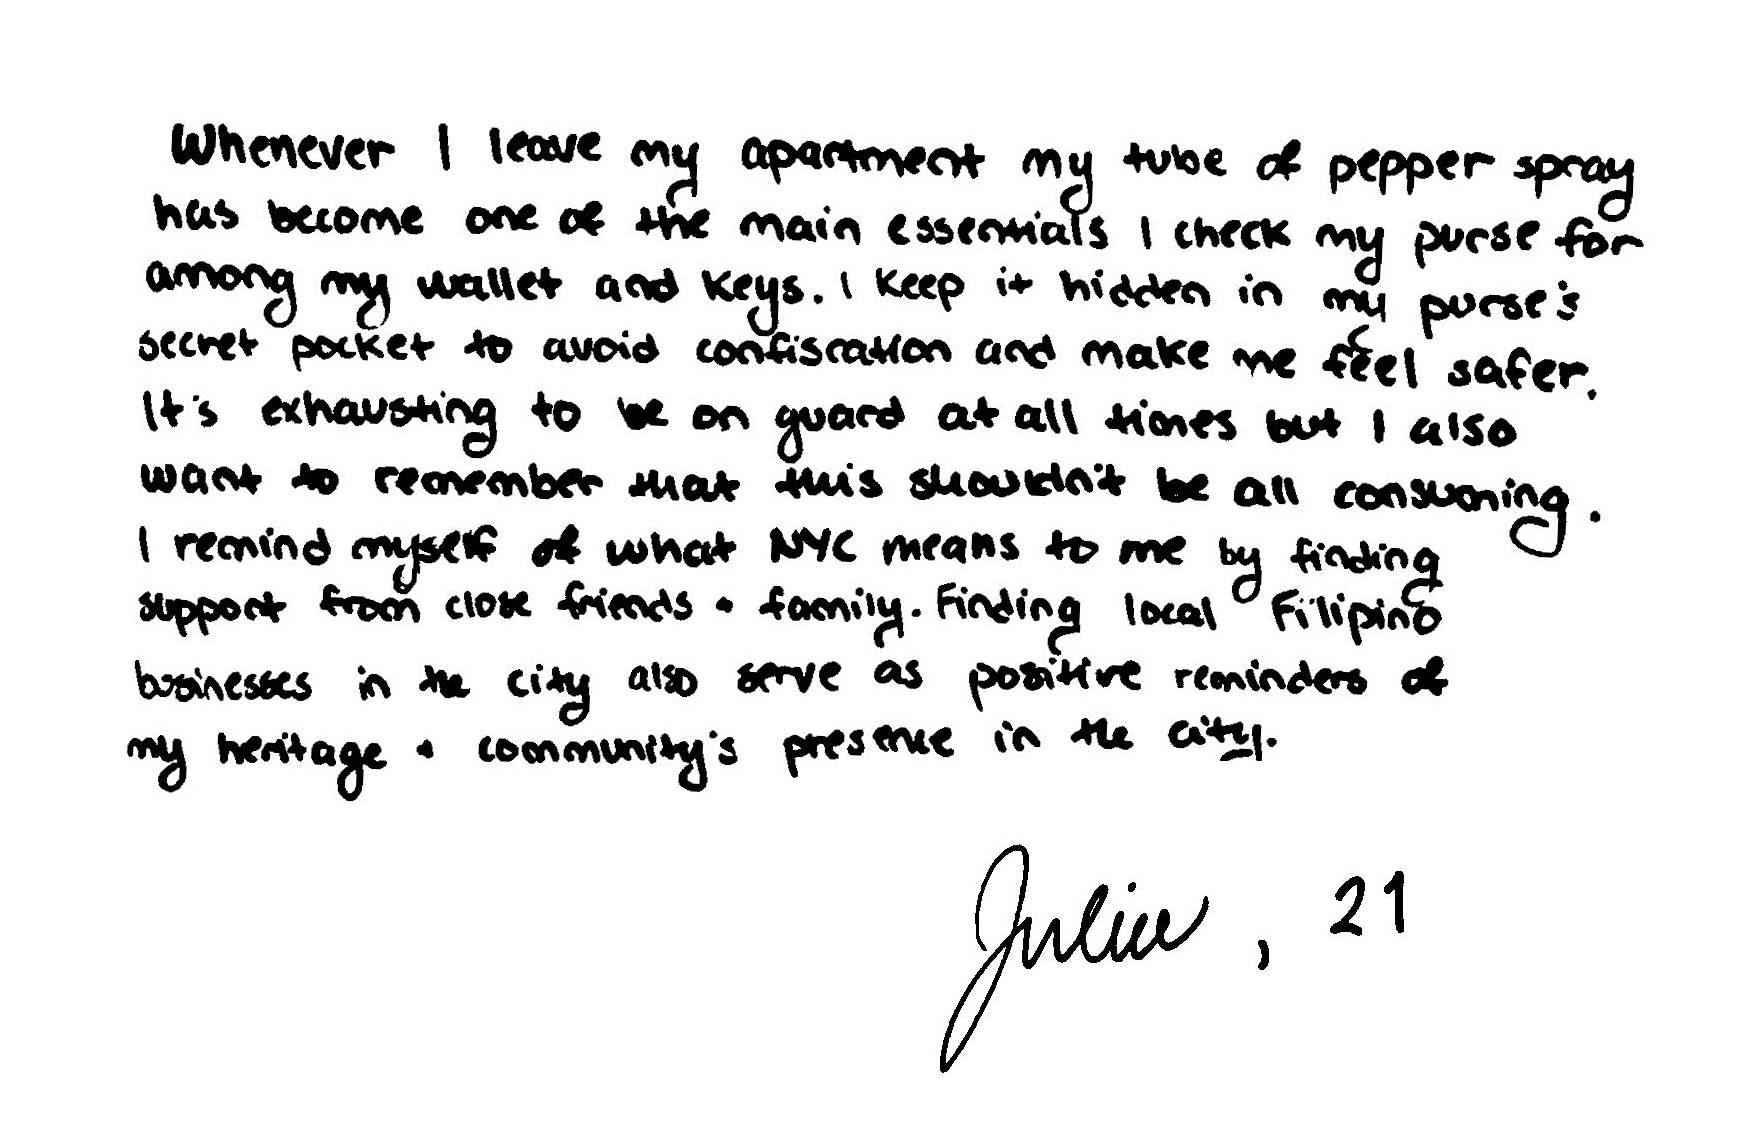 Whenever I leave my apartment my tube of pepper spray
has become one of the main essentials I check my purse for
among my wallet and keys. I keep it hidden in my purse's
secret pocket to avoid confiscation and make me feel safer.
It's exhausting to be on guard at all times but I also
want to remember that this shouldn't be all consuming.
I remind myself of what NYC means to me by finding
support from close friends + family. Finding local Filipino
businesses in the city also serve as positive reminders of
my heritage + community's presence in the city.
Julia, 21